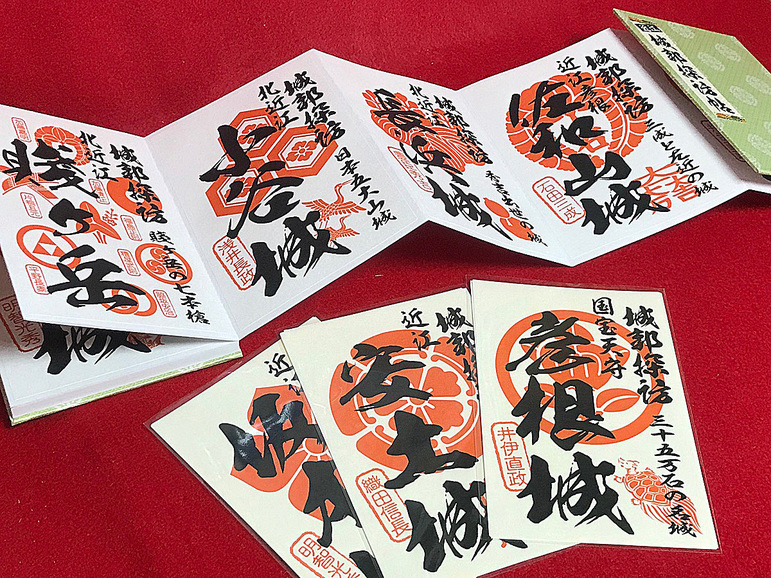 城郭探訪帳
城郭探訪
近江彦根
佐和山城
三成と左近の城
石田三成
大一大万大吉
城郭探訪
北近江
長浜城
秀吉出世の城
城郭探訪
北近江
小谷城
日本五大山城
浅井長政
城郭探訪
北近江
賤ヶ岳
賤ヶ岳の七本槍
城
明智光秀
城郭探訪
国宝天守
彦根城
三十五万石の名城
井伊直政
城郭探
近江
安土城
織田信長
近江
坂本
明智光